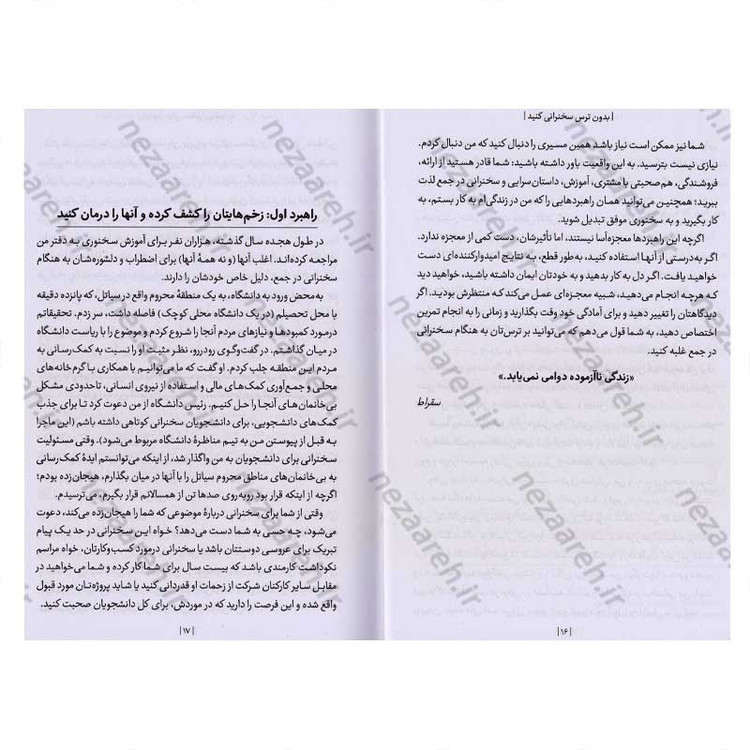 | بدون ترس سخنرانی کنید |
شما نیز ممکن است نیاز باشد همین مسیری را دنبال کنید که من دنبال کردم.
نیازی نیست بترسید. به این واقعیت باور داشته باشید: شما قادر هستید از ارائه،
فروشندگی، هم‌صحبتی با مشتری، آموزش، داستان‌سرایی و سخنرانی در جمع لذت
ببرید؛ همچنین می‌توانید همان راهبردهایی را که من در زندگی‌ام به کار بستم، به
کار بگیرید و به سخنوری موفق تبدیل شوید.
اگرچه این راهبردها معجزه‌آسا نیستند، اما تأثیرشان، دست کمی از معجزه ندارد.
اگر به‌درستی از آنها استفاده کنید، به‌طور قطع، به نتایج امیدوارکننده‌ای دست
خواهید یافت. اگر دل به کار بدهید و به خودتان ایمان داشته باشید، خواهید دید
که هرچه انجام می‌دهید، شبیه معجزه‌ای عمل می‌کند که منتظرش بودید. اگر
دیدگاهتان را تغییر دهید و برای آمادگی خود وقت بگذارید و زمانی را به انجام تمرین
اختصاص دهید، به شما قول می‌دهم که می‌توانید بر ترس‌تان به هنگام سخنرانی
در جمع غلبه کنید.
«زندگی ناآزموده دوامی نمی‌یابد.»
سقراط
| ۱۶ |
راهبرد اول: زخم‌هایتان را کشف کرده و آنها را درمان کنید
در طول هجده سال گذشته، هزاران نفر برای آموزش سخنوری به دفتر من
مراجعه کرده‌اند. اغلب آنها (و نه همهٔ آنها) برای اضطراب و دلشوره‌شان به هنگام
سخنرانی در جمع، دلیل خاص خودشان را دارند.
به‌محض ورود به دانشگاه، به یک منطقهٔ محروم واقع در سیاتل، که پانزده دقیقه
با محل تحصیلم (در یک دانشگاه محلی کوچک) فاصله داشت، سر زدم. تحقیقاتم
درمورد کمبودها و نیازهای مردم آنجا را شروع کردم و موضوع را با ریاست دانشگاه
در میان گذاشتم. در گفت‌وگوی رودررو، نظر مثبت او را نسبت به کمک‌رسانی به
مردم این منطقه جلب کردم. او گفت که ما می‌توانیم با همکاری با گرم‌خانه‌های
محلی و جمع‌آوری کمک‌های مالی و استفاده از نیروی انسانی، تاحدودی مشکل
بی‌خانمان‌های آنجا را حل کنیم. رئیس دانشگاه از من دعوت کرد تا برای جذب
کمک‌های دانشجویی، برای دانشجویان سخنرانی کوتاهی داشته باشم (این ماجرا
به قبل از پیوستن من به تیم مناظرهٔ دانشگاه مربوط می‌شود). وقتی مسئولیت
سخنرانی برای دانشجویان به من واگذار شد، از اینکه می‌توانستم ایدهٔ کمک‌رسانی
به بی‌خانمان‌های مناطق محروم سیاتل را با آنها در میان بگذارم، هیجان‌زده بودم؛
اگرچه از اینکه قرار بود روبه‌روی صدها تن از همسالانم قرار بگیرم، می‌ترسیدم.
وقتی از شما برای سخنرانی دربارهٔ موضوعی که شما را هیجان‌زده می‌کند، دعوت
می‌شود، چه حسی به شما دست می‌دهد؟ خواه این سخنرانی در حد یک پیام
تبریک برای عروسی دوستتان باشد یا سخنرانی درمورد کسب‌وکارتان، خواه مراسم
نکوداشت کارمندی باشد که بیست سال برای شما کار کرده و شما می‌خواهید در
مقابل سایر کارکنان شرکت از زحمات او قدردانی کنید یا شاید پروژه‌تان مورد قبول
واقع شده و این فرصت را دارید که در موردش، برای کل دانشجویان صحبت کنید.
| ۱۷ |
nezaareh.ir
nezaareh.ir
nezaareh.ir
nezaareh.ir
nezaareh.ir
nezaareh.ir